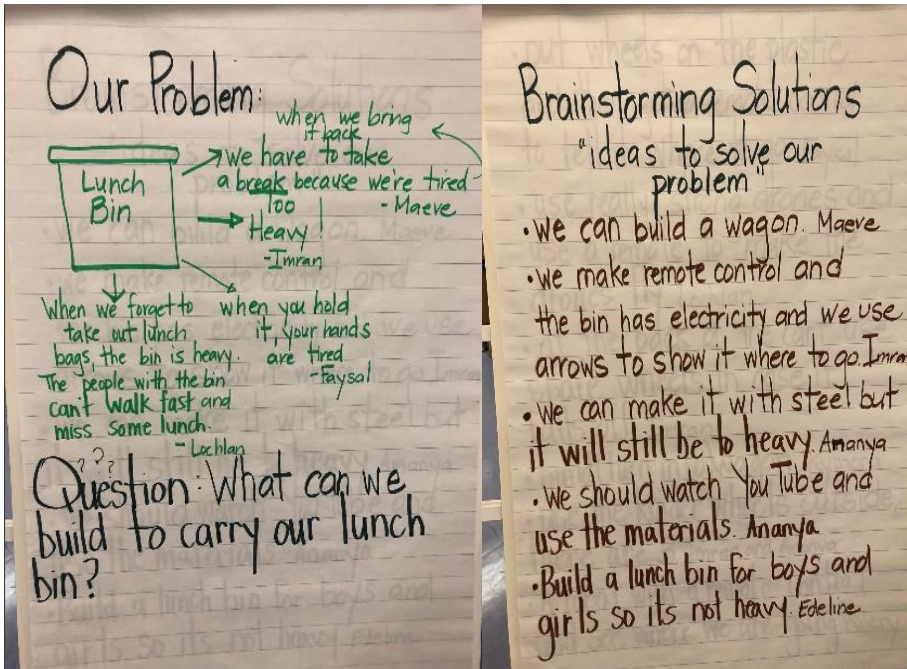 Our Problem:
when we bring
it back
we have to take
a break because we're tired
- Maeve
Lunch
Bin
Too
Heavy!
-Imran
When we forget to
take out lunch
bags, the bin is heavy.
The people with the bin
can't walk fast and
miss some lunch.
- Lochlan
when you hold
it, your hands
are tired
-Faysal
???
Question: What can we
build to carry our lunch
bin?
Brainstorming Solutions
"ideas to solve our
problem"
• we can build a wagon. Maeve
• we make remote control and
the bin has electricity and we use
arrows to show it where to go. Imran
• we can make it with steel but
it will still be to heavy. Ananya
• we should watch YouTube and
use the materials. Ananya
• Build a lunch bin for boys and
girls so its not heavy. Edeline